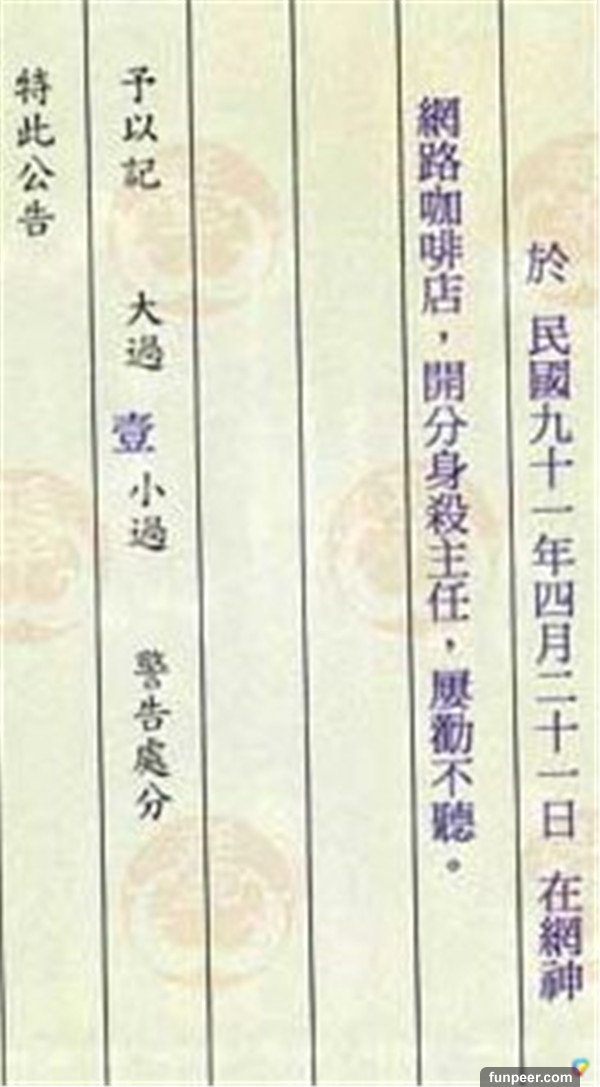 於 民國九十一年四月二十一日 在網神
網路咖啡店，開分身殺主任，屢勸不聽。
予以記 大過 壹 小過 警告處分
特此公告
funpeer.com